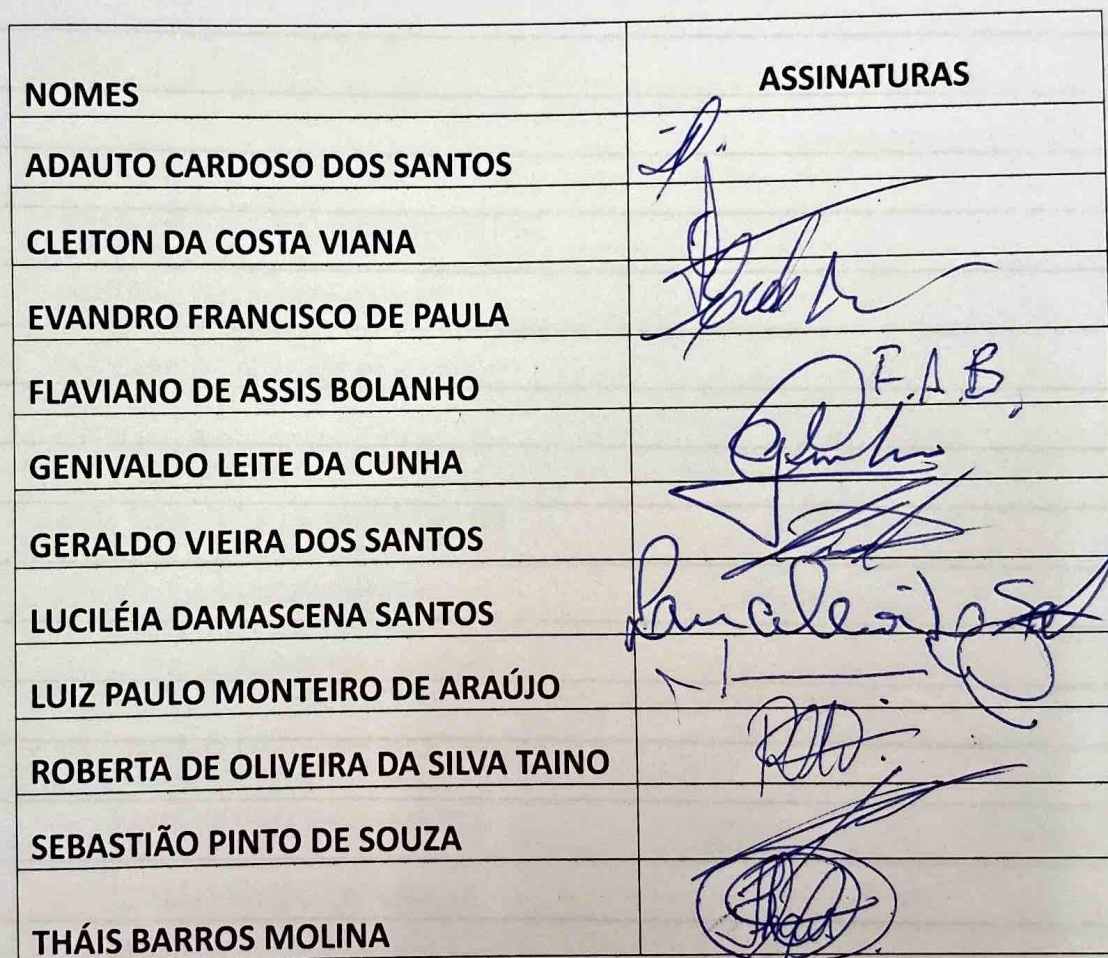 NOMES ASSINATURAS
ADAUTO CARDOSO DOS SANTOS
CLEITON DA COSTA VIANA
EVANDRO FRANCISCO DE PAULA
FLAVIANO DE ASSIS BOLANHO F.A.B.
GENIVALDO LEITE DA CUNHA
GERALDO VIEIRA DOS SANTOS
LUCILÉIA DAMASCENA SANTOS
LUIZ PAULO MONTEIRO DE ARAÚJO
ROBERTA DE OLIVEIRA DA SILVA TAINO
SEBASTIÃO PINTO DE SOUZA
THÁIS BARROS MOLINA